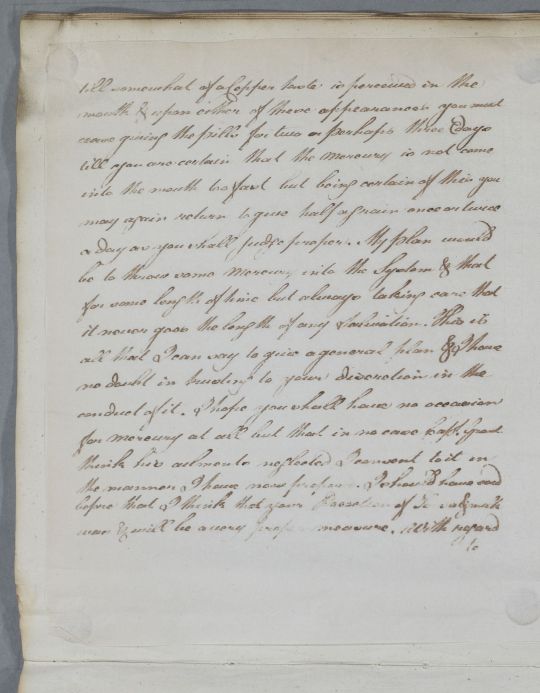 till somewhat of a Copper taste is perceived in the
mouth & upon either of these appearances you must
cease giving the pills for two or perhaps three days
till you are certain that the mercury is not come
into the mouth too fast but being certain of this you
may again return to give half a grain once or twice
a day as you shall judge proper. My plan would
be to throw some Mercury into the System & that
for some length of time but always taking care that
it never goes the length of any Salivation. This is
all that I can say to give a general plan & I have
no doubt in trusting to your discretion in the
conduct of it. I hope you shall have no occasion
for mercury at all but that in no case Capt.
think his ailments neglected I consent to it in
the manner I have now proposed. I should have said
before that I think that your of &
was & will be a very proper measure. With regard
to